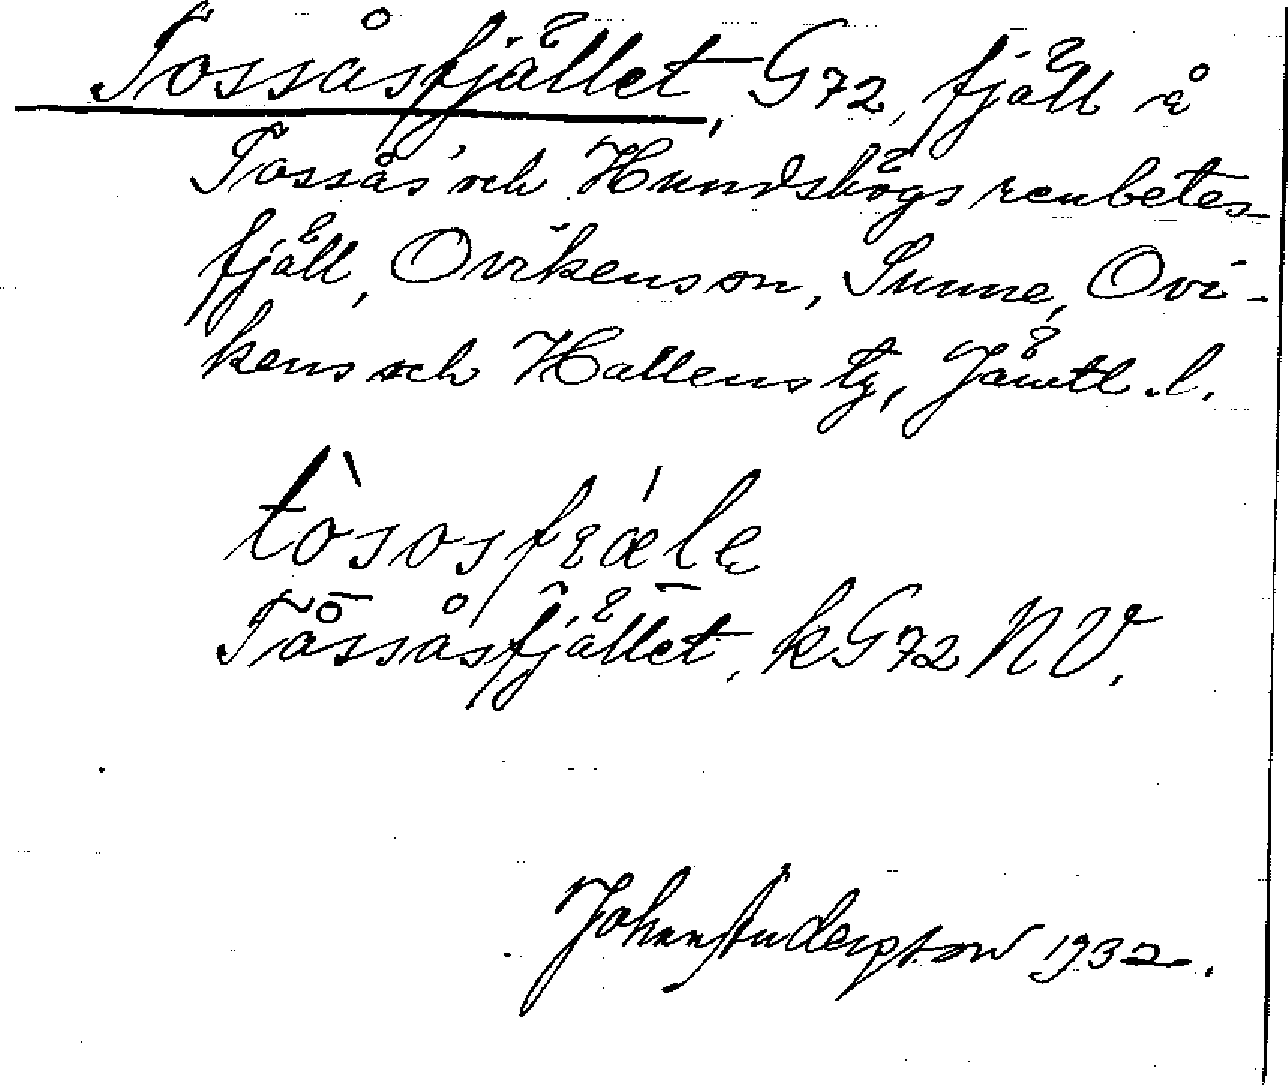 Tossåsfjället, G72, fjäll å
Tossås' och Hundshögs renbetes-
fjäll, Ovikens sn, Sunne, Ovi-
kens och Hallens tg, Jämtl. l.
tòsosfjæ̀le
Tåssåsfjället, kG72 NV.
John Anderson 1932.